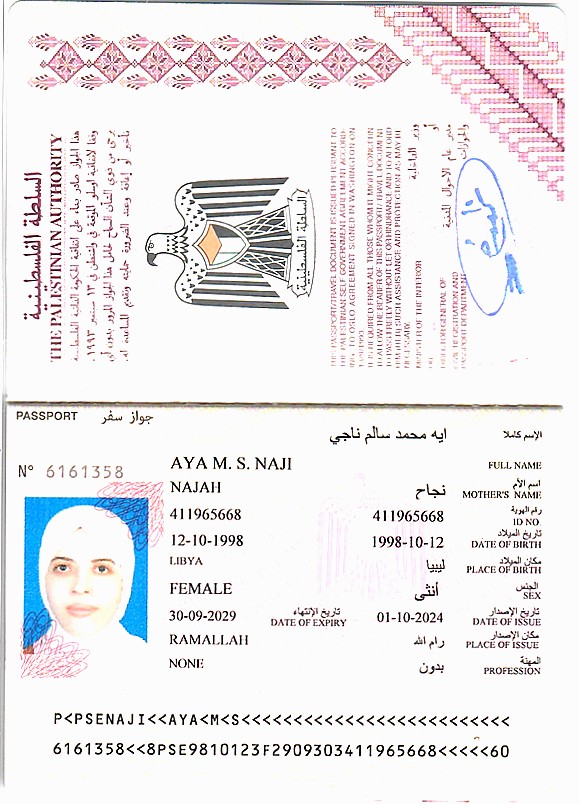 السلطة الفلسطينية
THE PALESTINIAN AUTHORITY
هذا الجواز صادر بناء على اتفاقية الحكومة الذاتية الفلسطينية
وفقا لاتفاقية اوسلو الموقعة في واشنطن في ١٣ سبتمبر ١٩٩٣.
السلطة الفلسطينية
THIS PASSPORT/TRAVEL DOCUMENT IS ISSUED PURSUANT TO
THE PALESTINIAN SELF GOVERNMENT AGREEMENT ACCORD-
ING TO OSLO AGREEMENT SIGNED IN WASHINGTON ON
13/9/1993.
IT IS REQUIRED FROM ALL THOSE WHOM IT MIGHT CONCERN
TO ALLOW THE BEARER OF THIS PASSPORT/ TRAVEL DOCUMENT
TO PASS FREELY WITHOUT LET OR HINDRANCE AND TO AFFORD
HIM (HER) SUCH ASSISTANCE AND PROTECTION AS MAY BE
NECESSARY.
وزير الداخلية
MINISTER OF THE INTERIOR
أو
OR
مدير عام الاحوال المدنية
والجوازات
DIRECTOR GENERAL OF
CIVIL REGISTRATION AND
PASSPORT DEPARTMENT
PASSPORT جواز سفر
ايه محمد سالم ناجي الإسم كاملا
AYA M. S. NAJI FULL NAME
Nº 6161358
NAJAH نجاح اسم الأم MOTHER'S NAME
411965668 411965668 رقم الهوية ID NO.
12-10-1998 1998-10-12 تاريخ الميلاد DATE OF BIRTH
LIBYA ليبيا مكان الميلاد PLACE OF BIRTH
FEMALE أنثى الجنس SEX
30-09-2029 تاريخ الإنتهاء DATE OF EXPIRY 01-10-2024 تاريخ الإصدار DATE OF ISSUE
RAMALLAH رام الله مكان الإصدار PLACE OF ISSUE
NONE بدون المهنة PROFESSION
P<PSENAJI<<AYA<M<S<<<<<<<<<<<<<<<<<<<<<<<<<<
6161358<<8PSE9810123F2909303411965668<<<<<60